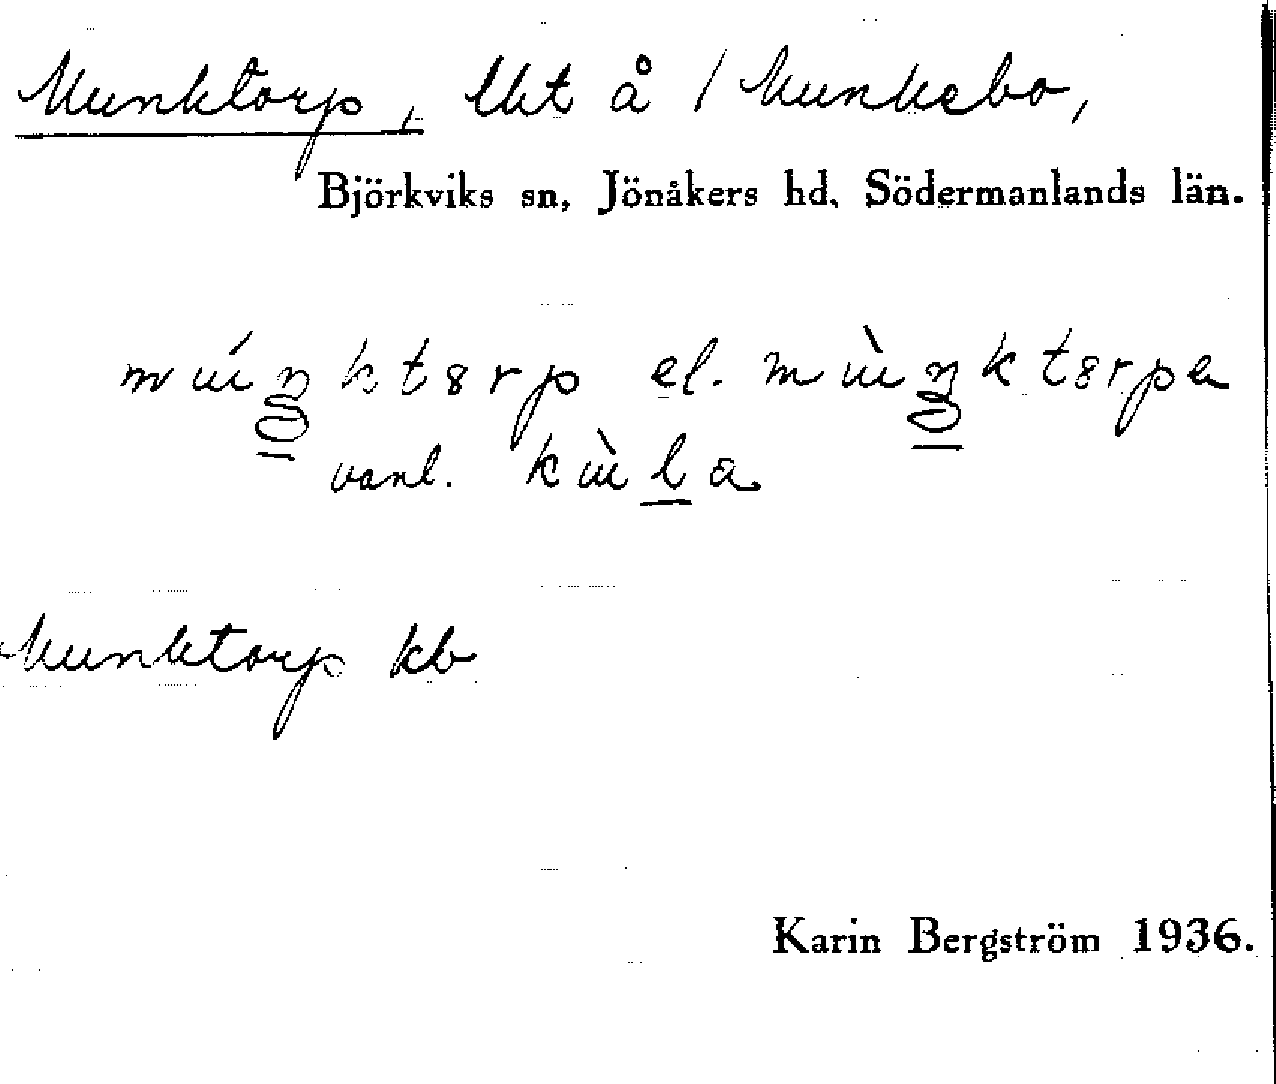 Munktorp, lht å / Munkebo,
Björkviks sn, Jönåkers hd, Södermanlands län.
múŋktɞrp el. mùŋktɞrpa
vanl. kùla
Munktorp kb
Karin Bergström 1936.